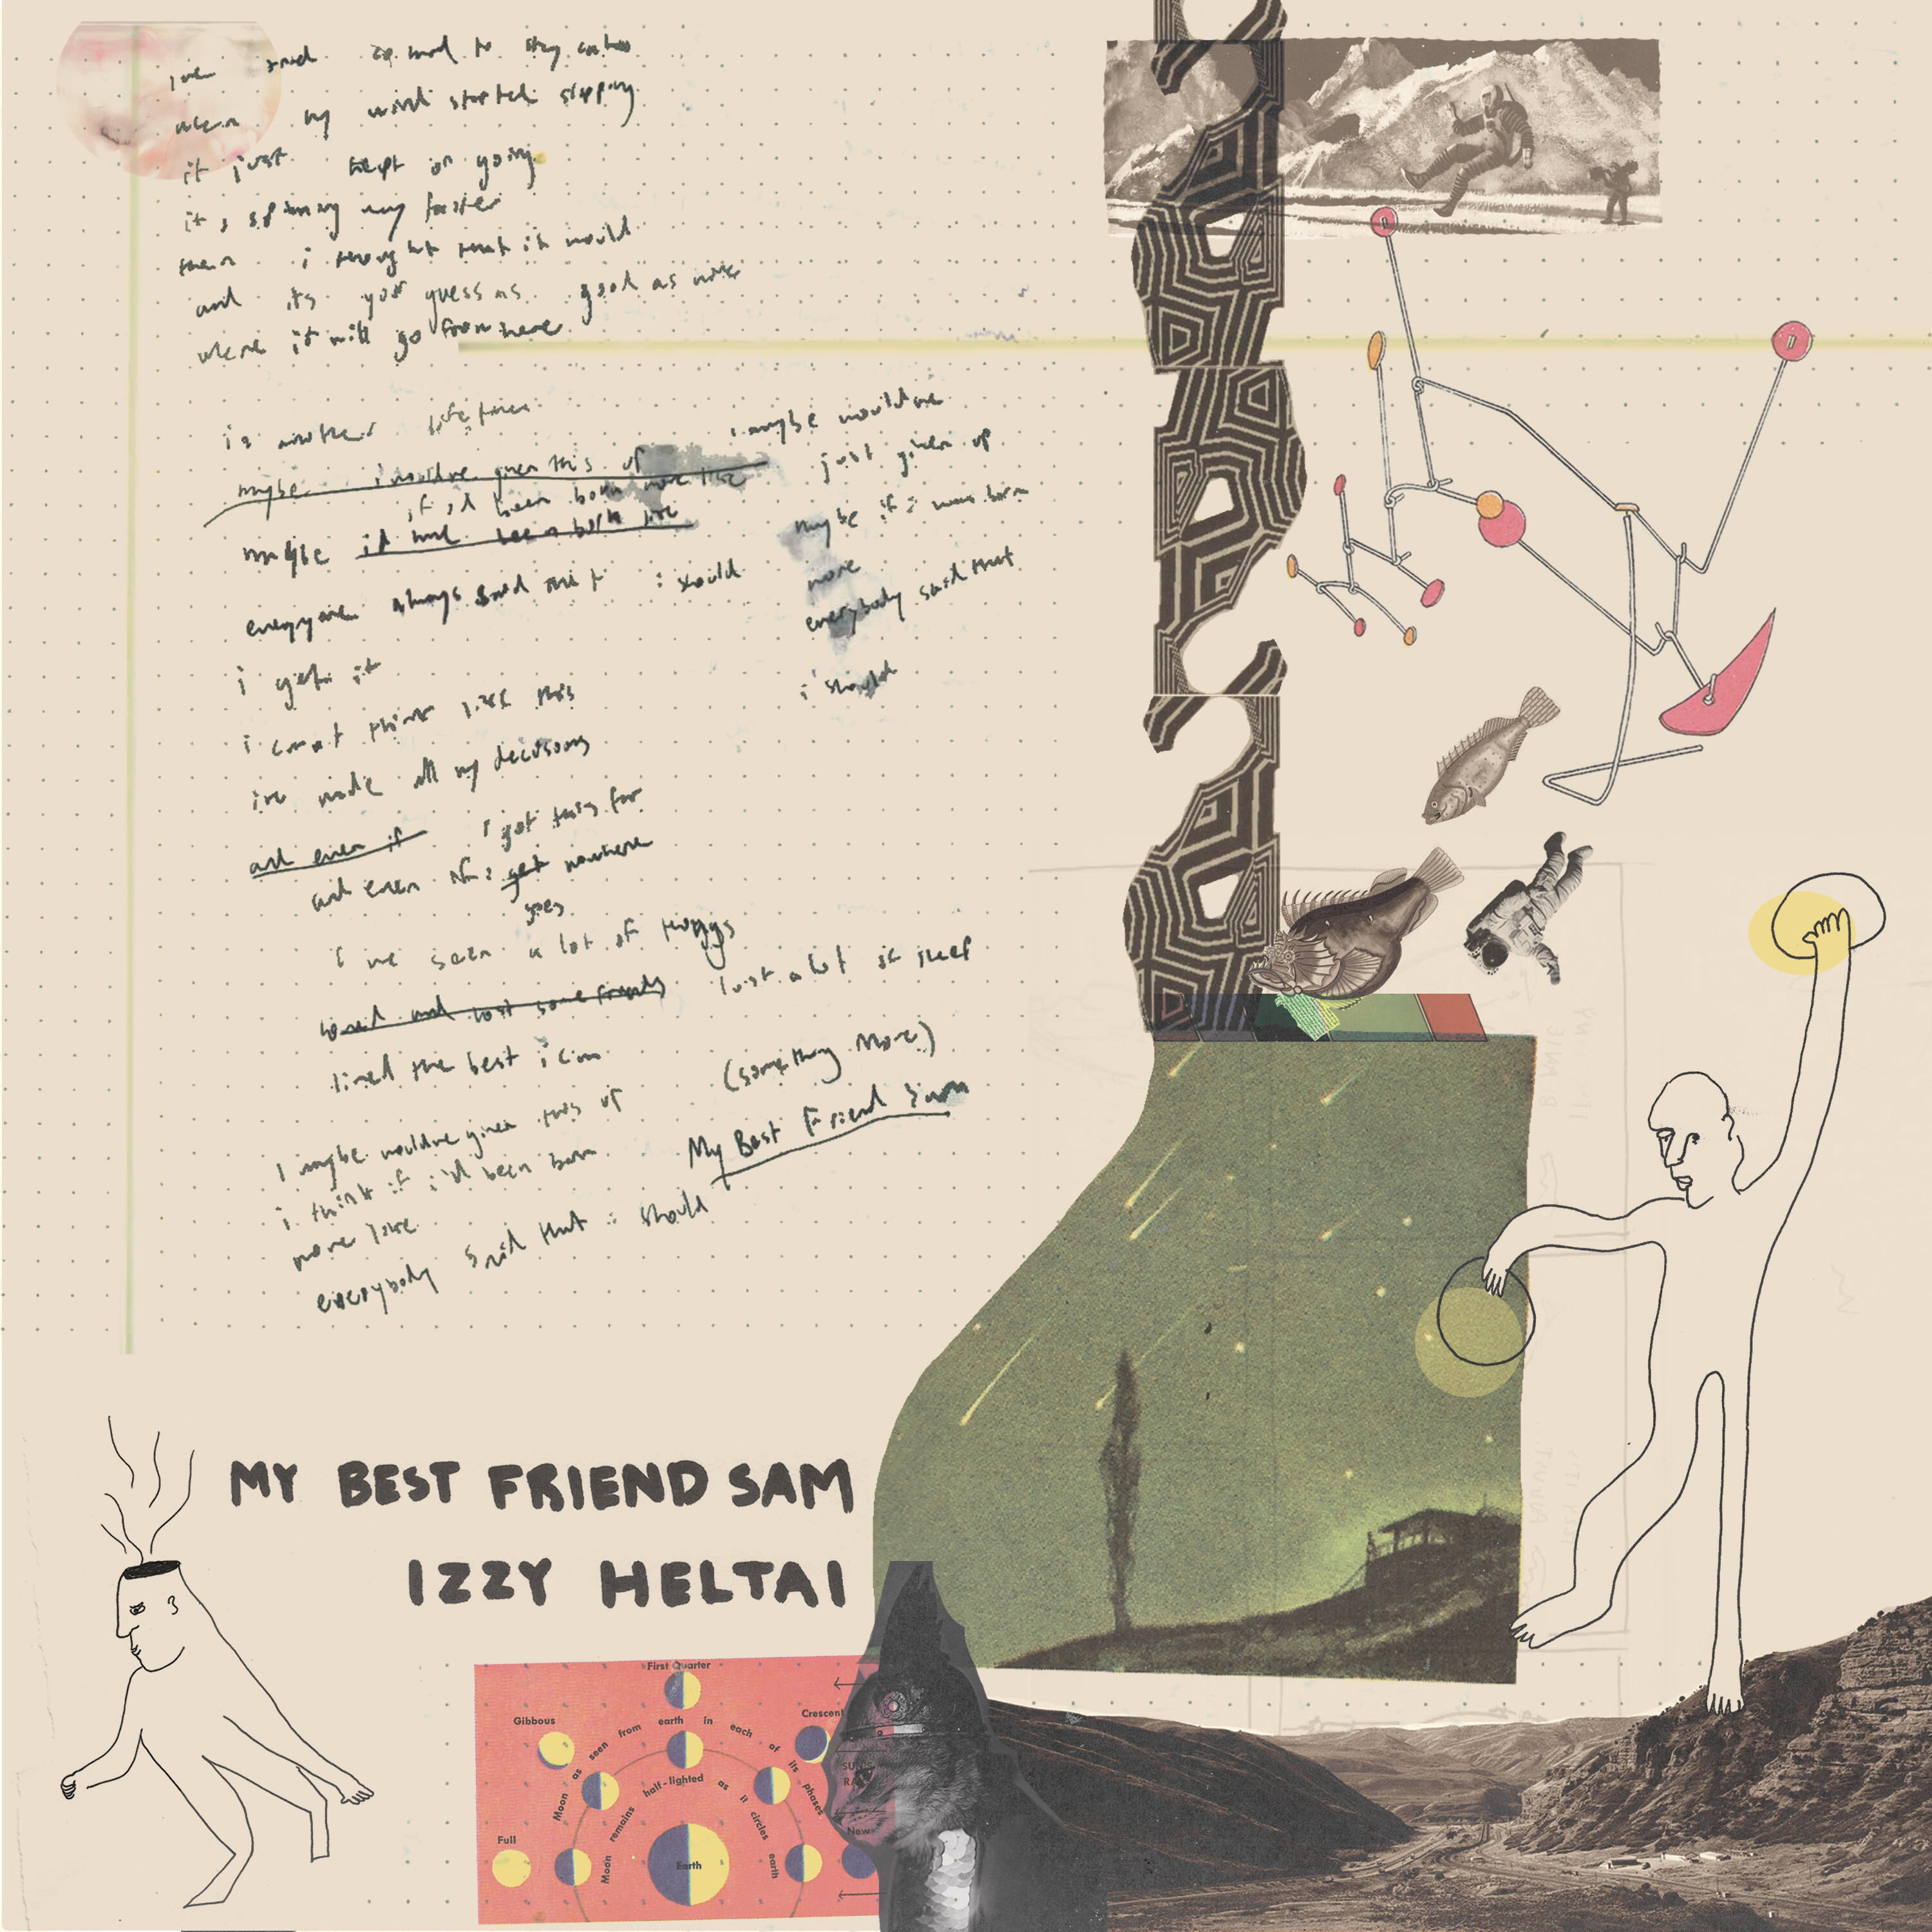 ive tried so hard to stay
when my mind started slipping
it just kept on going
its spinning way faster
then i thought that it would
and its your guess as good as mine
where it will go from here
in another lifetime
maybe i wouldve given this up
if id been born more like
maybe id have been born like
everyone always said that i should
i get it
i cant think like this
ive made all my decisions
and even if i got this far
and even if i get nowhere
goes
i've seen a lot of things
loved and lost some friends lost a lot of sleep
lived the best i can
i maybe wouldve given this up
i think if i'd been born
more like
everybody said that i should
i maybe wouldve
just given up
maybe if i was born
more
everybody said that
i should
(something more)
My Best Friend Sam
MY BEST FRIEND SAM
IZZY HELTAI
First Quarter
Gibbous
Crescent
Moon as seen from earth in each of its phases
Moon remains half-lighted as it circles earth
Full
Earth
New